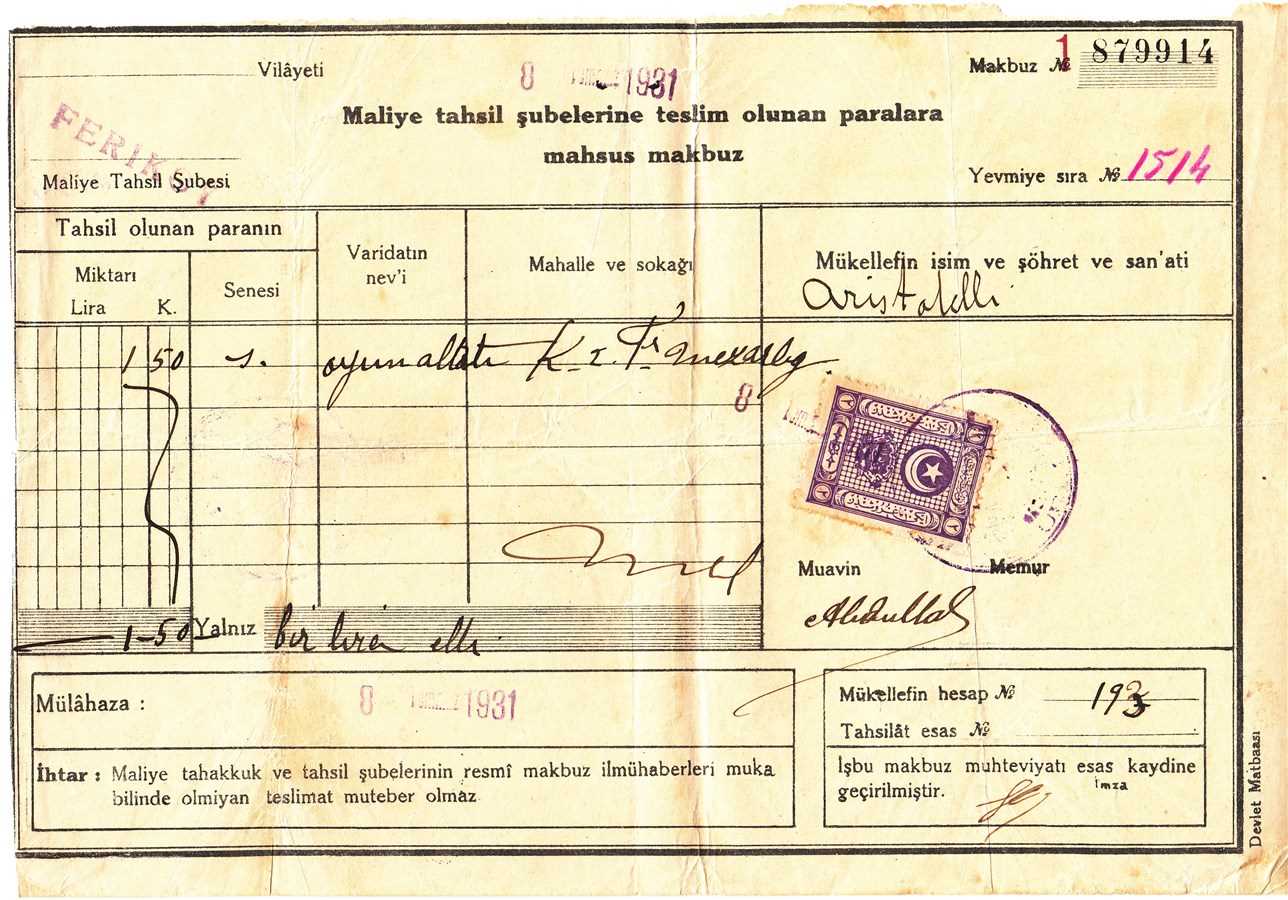 Vilâyeti
8 1931
Makbuz № 1 879914
Maliye tahsil şubelerine teslim olunan paralara
mahsus makbuz
FERIKOY
Maliye Tahsil Şubesi
Yevmiye sıra № 1514
Tahsil olunan paranın
Miktarı
Lira K.
Senesi
Varidatın
nev'i
Mahalle ve sokağı
Mükellefin isim ve şöhret ve san'ati
1 50
8
Muavin
Memur
Abdullah
1-50 Yalnız bir lira elli
Mülâhaza :
8 1931
Mükellefin hesap № 193
Tahsilât esas №
İhtar : Maliye tahakkuk ve tahsil şubelerinin resmî makbuz ilmühaberleri muka
bilinde olmiyan teslimat muteber olmaz
İşbu makbuz muhteviyatı esas kaydine
geçirilmiştir.
İmza
Devlet Matbaası